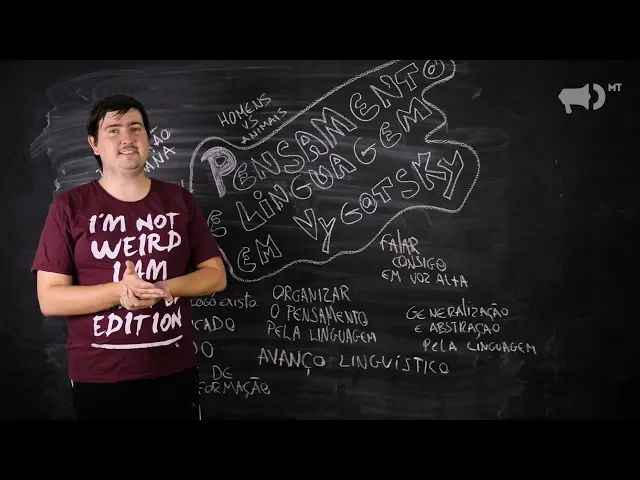 MT
HOMENS
VS
ANIMAIS
PENSAMENTO
E LINGUAGEM
EM VYGOTSKY
FALAR
CONSIGO
EM VOZ ALTA
I'M NOT
WEIRD
I AM
EDITION
LOGO EXISTO
ORGANIZAR
O PENSAMENTO
PELA LINGUAGEM
GENERALIZAÇÃO
E ABSTRAÇÃO
PELA LINGUAGEM
AVANÇO LINGUÍSTICO
DE